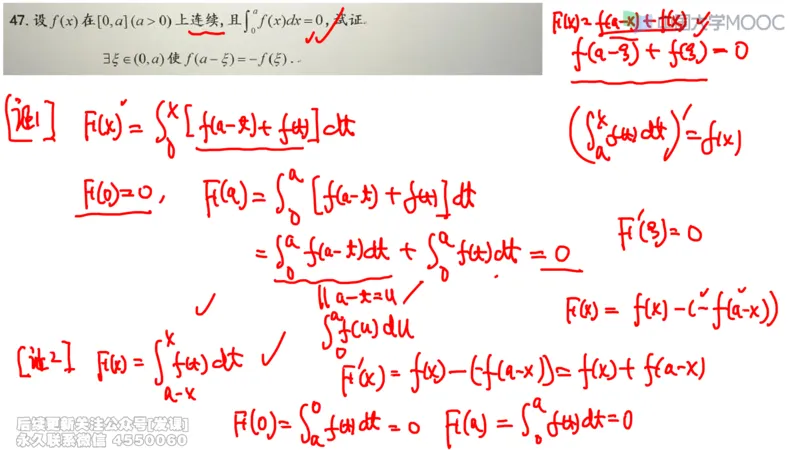 47. 设 f(x) 在 [0, a] (a > 0) 上连续, 且 ∫₀ᵃ f(x)dx = 0, 试证
∃ξ∈(0, a) 使 f(a−ξ) = −f(ξ).
F(x) = f(a-x) + f(x)
中国大学MOOC
f(a-ξ) + f(ξ) = 0
[证1] F(x) = ∫₀ˣ [f(a-t) + f(t)] dt
(∫ₐˣ f(t) dt)' = f(x)
F(0) = 0, F(a) = ∫₀ᵃ [f(a-t) + f(t)] dt
= ∫₀ᵃ f(a-t) dt + ∫₀ᵃ f(t) dt = 0
F'(ξ) = 0
|| a-t=u
∫₀ᵃ f(u) du
F(x) = f(x) - (-f(a-x))
[证2] F(x) = ∫ₐ₋ₓˣ f(t) dt
F'(x) = f(x) - (-f(a-x)) = f(x) + f(a-x)
F(0) = ∫ₐ⁰ f(t) dt = 0 F(a) = ∫₀ᵃ f(t) dt = 0
后续更新关注公众号[发课]
永久联系微信 4550060